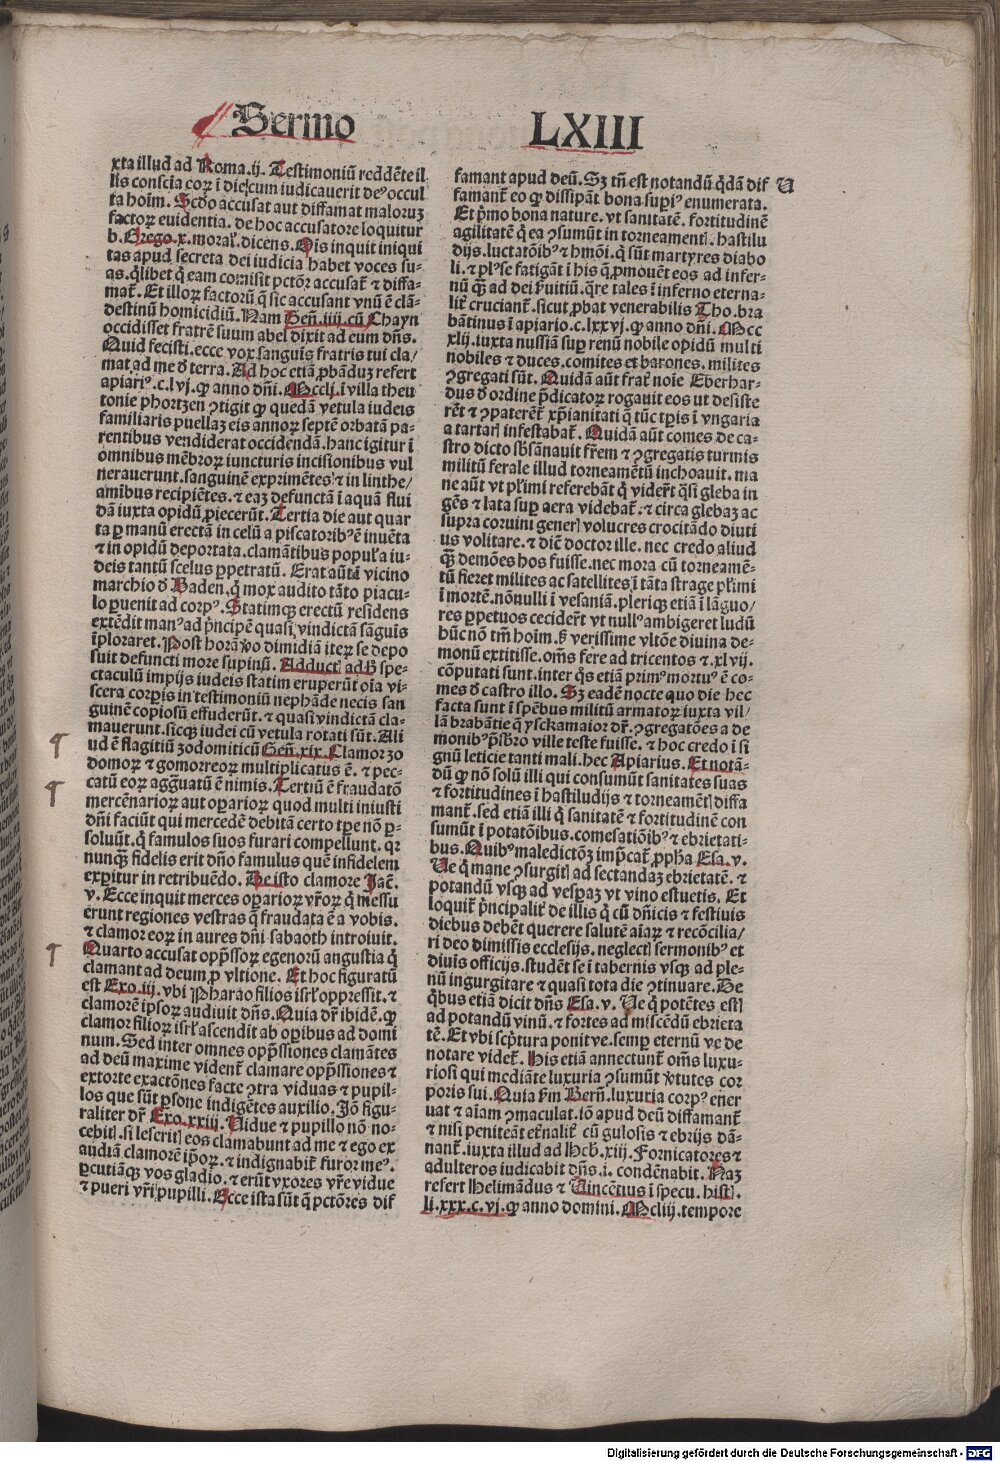 Sermo LXIII
xta illud ad Roma.ij. Testimoniū reddēte il
lis consciā coꝝ ī die cum iudicauerit deꝰ occul
ta hoīm. Scdo accusat aut diffamat maloruꝫ
factoꝝ euidentia. de hoc accusatore loquitur
b. Grego.x. moral. dicens. Ois inquit iniqui
tas apud secreta dei iudicia habet voces su-
as. q̄libet q̄ eam comisit pctōꝝ accusat & diffa-
mat. Et illoꝝ factorū q̄ sic accusant vnū ē clā-
destinū homicidiū. Nam Gen̄.iiij.cū Chayn
occidisset fratrē suum abel dixit ad eum dn̄s.
Quid fecisti. ecce vox sanguis fratris tui cla/
mat ad me d̄ terra. Ad hoc etiā ꝓbanduꝫ refert
apiariꝰ.c.lvj. ꝙ anno dn̄i. Mcclj. ī villa theu
tonie phortzen ꝯtigit ꝙ quedā vetula iudeis
familiaris puellaꝫ eis annoꝝ septē orbatā pa-
rentibus vendiderat occidendā. hanc igitur ī
omnibus mēbroꝝ iuncturis incisionibus vul
nerauerunt. sanguinē exprimētes & in linthe/
aminibus recipiētes. & eaꝫ defunctā ī aquā flui
dā iuxta opidū ꝓiecerūt. Tertia die aut quar
ta ꝑ manū erectā in celū a piscatoribꝰ ē inuēta
& in opidū deportata. clamātibus popul'a iu-
deis tantū scelus ꝑpetratū. Erat autē vicino
marchio d̄ Baden. q̄ mox audito tāto piacu-
lo ꝑuenit ad corpꝰ. Statimqꝫ erectū residens
extēdit manꝰ ad pn̄cipē quasi vindictā sāguis
īploraret. Post horā ꝟo dimidiā iteꝝ se depo
suit defuncti more supinū. Adductꝭ ad B spe-
ctaculū impijs iudeis statim eruperūt oīa vi-
scera corꝑis in testimoniū nephāde necis san
guinē copiosū effuderūt. & quasi vindictā cla-
mauerunt. sicqꝫ iudei cū vetula rotati sūt. Ali
ud ē flagitiū zodomiticū Gen̄.xix. Clamor zo
domoꝝ & gomorreoꝝ multiplicatus ē. & pec-
catū eoꝝ aggͣuatū ē nimis. Tertiū ē fraudatō
mercēnarioꝝ aut oparioꝝ quod multi iniusti
dn̄i faciūt qui mercedē debitā certo tꝑe nō ꝑ-
soluūt. q̄ famulos suos furari compellunt. qꝛ
nunqꝫ fidelis erit dn̄o famulus quē infidelem
exꝑitur in retribuēdo. De isto clamore Jac̄.
v. Ecce inquit merces oparioꝝ vr̄oꝝ q̄ messu
erunt regiones vestras q̄ fraudata ē a vobis.
& clamor eoꝝ in aures dn̄i sabaoth introiuit.
Quarto accusat opp̄ssoꝝ egenorū angustia q̄
clamant ad deum ꝓ vltione. Et hoc figuratū
est Exo.iij. vbi Pharao filios isrl' oppressit. &
clamorē ipsoꝝ audiuit dn̄s. Quia dr̄ ibidē. ꝙ
clamor filioꝝ isrl' ascendit ab opibus ad domi
num. Sed inter omnes opp̄ssiones clamātes
ad deū maxime vident̄ clamare opp̄ssiones &
extorte exactōnes facte ꝯtra viduas & pupil-
los que sūt ꝑsone indigētes auxilio. Jō figu-
raliter dr̄ Exo.xxiij. Vidue & pupillo nō no-
cebitꝭ. si leseritꝭ eos clamabunt ad me & ego ex
audiā clamorē ip̄oꝝ. & indignabit̄ furor meꝰ.
ꝑcutiāqꝫ vos gladio. & erūt vxores vr̄e vidue
& pueri vr̄i pupilli. Ecce ista sūt q̄ pctōres dif
famant apud deū. Sꝫ tn̄ est notandū q̄dā dif
V
famant̄ eo ꝙ dissipāt bona supiꝰ enumerata.
Et pͥmo bona nature. vt sanitatē. fortitudinē
agilitatē q̄ ea ꝯsumūt in torneamentꝭ. hastilu
dijs. luctatōibꝰ & hmōi. q̄ sūt martyres diabo
li. & plꝰ se fatigāt ī his q̄ ꝓmouēt eos ad infer-
nū qꝫ ad dei ẜuitiū. qͣre tales ī inferno eterna-
lit̄ cruciant̄. sicut ꝓbat venerabilis Tho. bra
bātinus ī apiario.c.lxxvj. ꝙ anno dn̄i. Mcc
xlij. iuxta nussiā sup renū nobile opidū multi
nobiles & duces. comites et barones. milites
ꝯgregati sūt. Quidā aūt frat̄ noīe Eberhar-
dus d̄ ordine p̄dicatoꝝ rogauit eos ut desiste
rēt & ꝯpaterēt̄ xp̄ianitati q̄ tūc tꝑis ī vngaria
a tartarꝭ infestabat̄. Quidā aūt comes de ca-
stro dicto sb̄sānauit fr̄em & ꝯgregatis turmis
militū ferale illud torneamētū inchoauit. ma
ne aūt vt plīmi referebāt q̄ vider̄t q̄si gleba in
gēs & lata sup aera videbat̄. & circa glebaꝫ ac
supra coruini generꝭ volucres crocitādo diuti
us volitare. & dic̄ doctor ille. nec credo aliud
qꝫ demōes hos fuisse. nec mora cū torneamē-
tū fieret milites ac satellites ī tāta strage plīmi
ī mortē. nōnulli ī vesaniā. pleriqꝫ etiā ī lāguo/
res ꝑpetuos cecider̄t vt nullꝰ ambigeret ludū
hūc nō tm̄ hoīm. ẜ verissime vltōe diuina de-
monū extitisse. om̄s fere ad tricentos &.xlvij.
cōputati sunt. inter q̄s etiā primꝰ mortuꝰ ē co-
mes d̄ castro illo. Sꝫ eadē nocte quo die hec
facta sunt ī spēbus militū armatoꝝ iuxta vil/
lā brabātie q̄ ysckamaior dr̄. ꝯgregatōes a de
monibꝰ p̄sbr̄o ville teste fuisse. & hoc credo ī si
gnū leticie tanti mali. hec Apiarius. Et notā-
dū ꝙ nō solū illi qui consumūt sanitates suas
& fortitudines ī hastiludijs & torneamētꝭ diffa
mant̄. sed etiā illi q̄ sanitatē & fortitudinē con
sumūt ī potatōibus. comesatiōibꝰ & ebrietati-
bus. Quibꝰ maledictōꝫ imp̄cat̄ ꝓph̄a Esa.v.
Ve q̄ mane ꝯsurgitꝭ ad sectandaꝫ ebrietatē. &
potandū vsqꝫ ad vesꝑaꝫ vt vino estuetis. Et
loquit̄ pn̄cipalit̄ de illis q̄ cū dn̄icis & festiuis
diebus debēt querere salutē aīaꝝ & recōcilia/
ri deo dimissis ecclesijs. neglectꝭ sermonibꝰ et
diuis officijs. studēt se ī tabernis vsqꝫ ad ple-
nū ingurgitare & quasi tota die ꝯtinuare. De
q̄bus etiā dicit dn̄s Esa.v. Ve q̄ potētes estꝭ
ad potandū vinū. & fortes ad miscēdū ebrieta
tē. Et vbi scp̄tura ponit ve. semꝑ eternū ve de
notare videt̄. His etiā annectunt̄ om̄s luxu-
riosi qui mediāte luxuria ꝯsumūt ꝟtutes cor
poris sui. Quia ẜm Bern̄. luxuria corpꝰ ener
uat & aīam ꝯmaculat. iō apud deū diffamant̄
& nisi peniteāt et̄nalit̄ cū gulosis & ebrijs dā-
nant̄. iuxta illud ad Heb̄.xiij. Fornicatores &
adulteros iudicabit dn̄s.i. condēnabit. Naꝫ
refert Helimādus & Vincētius ī specu. histꝭ.
li.xxx.c.vj. ꝙ anno domini. Mcliij. tempore
Digitalisierung gefördert durch die Deutsche Forschungsgemeinschaft - DFG